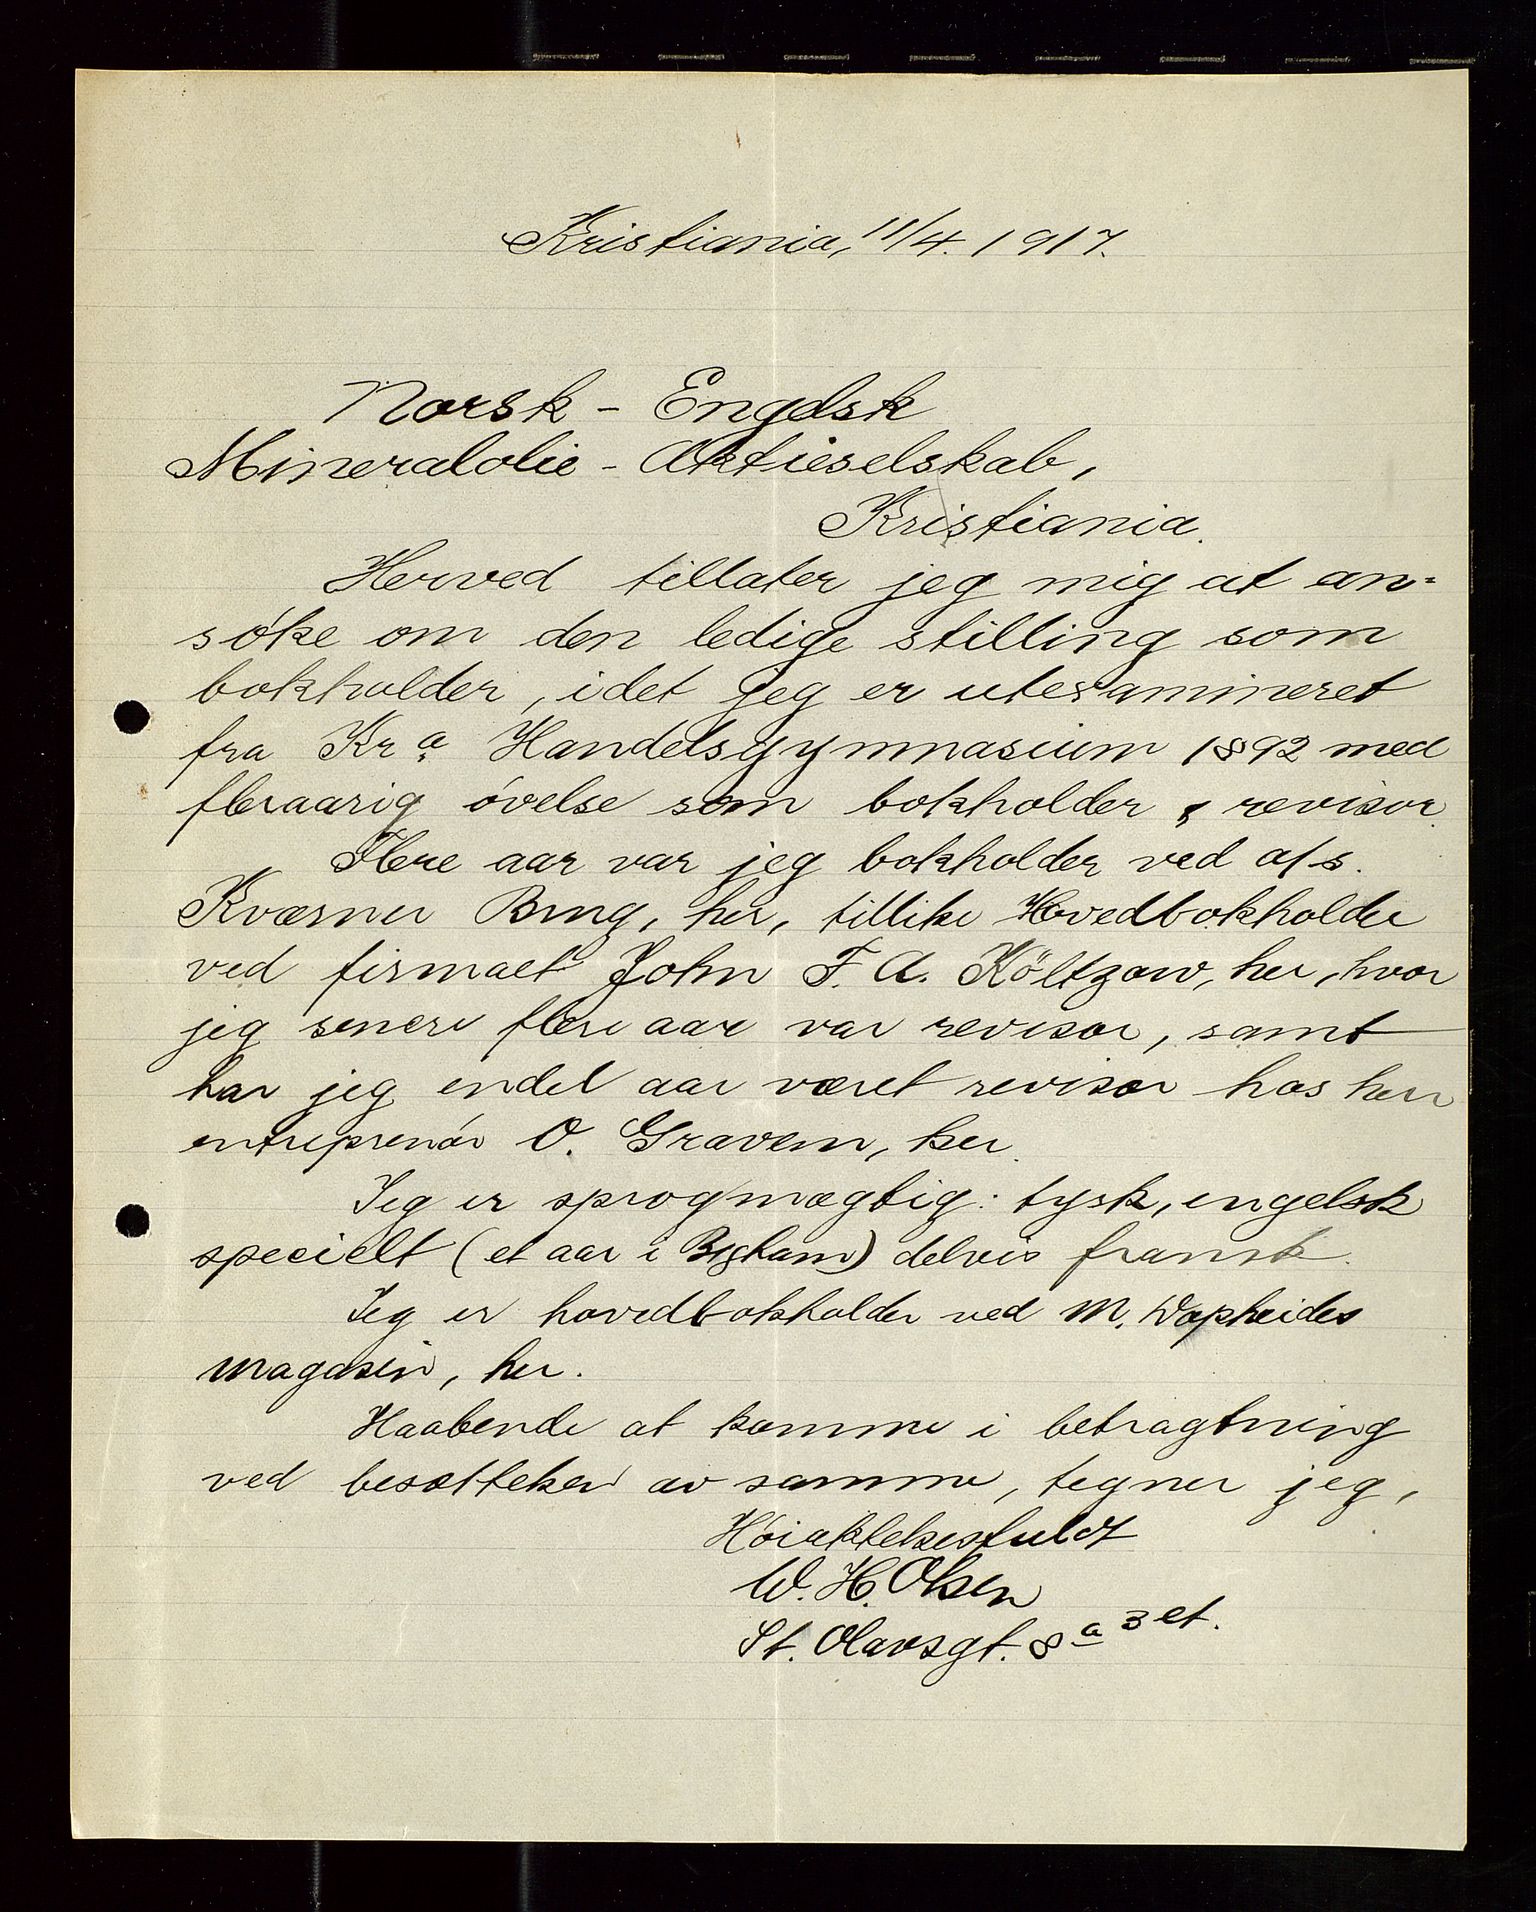 Kristiania, 11/4. 1917.
Norsk - Engelsk
Mineralolie - Aktieselskab,
Kristiania.
Herved tillater jeg mig at an-
søke om den ledige stilling som
bokholder, idet jeg er utexamineret
fra Kra. Handelsgymnasium 1892 med
fleraarig øvelse som bokholder & revisor.
Flere aar var jeg bokholder ved a/s.
Kværner Brug, her, tillike Hovedbokholder
ved firmaet John F. A. Költzow, her, hvor
jeg senere flere aar var revisor, samt
har jeg endel aar været revisor hos herr
entreprenør O. Gravem, her.
Jeg er sprogmægtig: tysk, engelsk
specielt (et aar i) delvis fransk.
Jeg er hovedbokholder ved M. Wopheides
magasin, her.
Haabende at komme i betragtning
ved besættelsen av samme, tegner jeg,
Høiaktelsesfuldt
W. H. Olsen
St. Olavsgt. 8a 3 et.